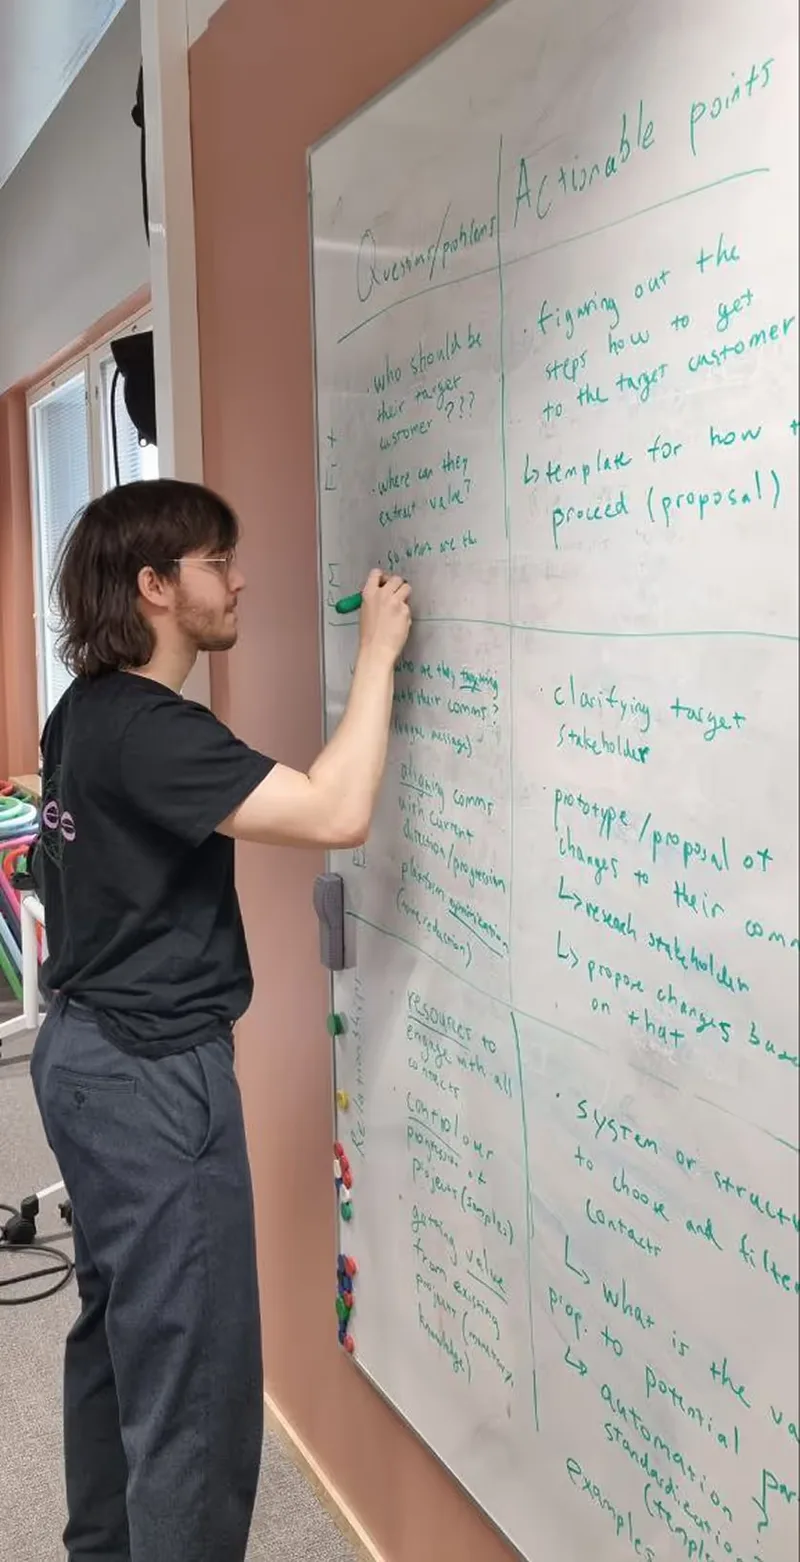 Questions/problems
Actionable points
· who should be
their target
customer ???
· where can they
extract value?
· so what are th
· figuring out the
steps how to get
to the target customer
↳ template for how
proceed (proposal)
who are they targeting
with their comms?
(vague message)
aligning comms
with current
direction/progression
platform optimization
reduction)
· clarifying target
stakeholder
· prototype/proposal of
changes to their com
↳ research stakeholder
↳ propose changes base
on that
Relationships
resources to
engage with all
contacts
· control over
progression of
projects (samples)
· gaining value
from existing
projects
knowledge)
· system or struct
to choose and filte
contacts
↳ what is the va
prop. to potential par
↳ automation
standardization
(templ
examples